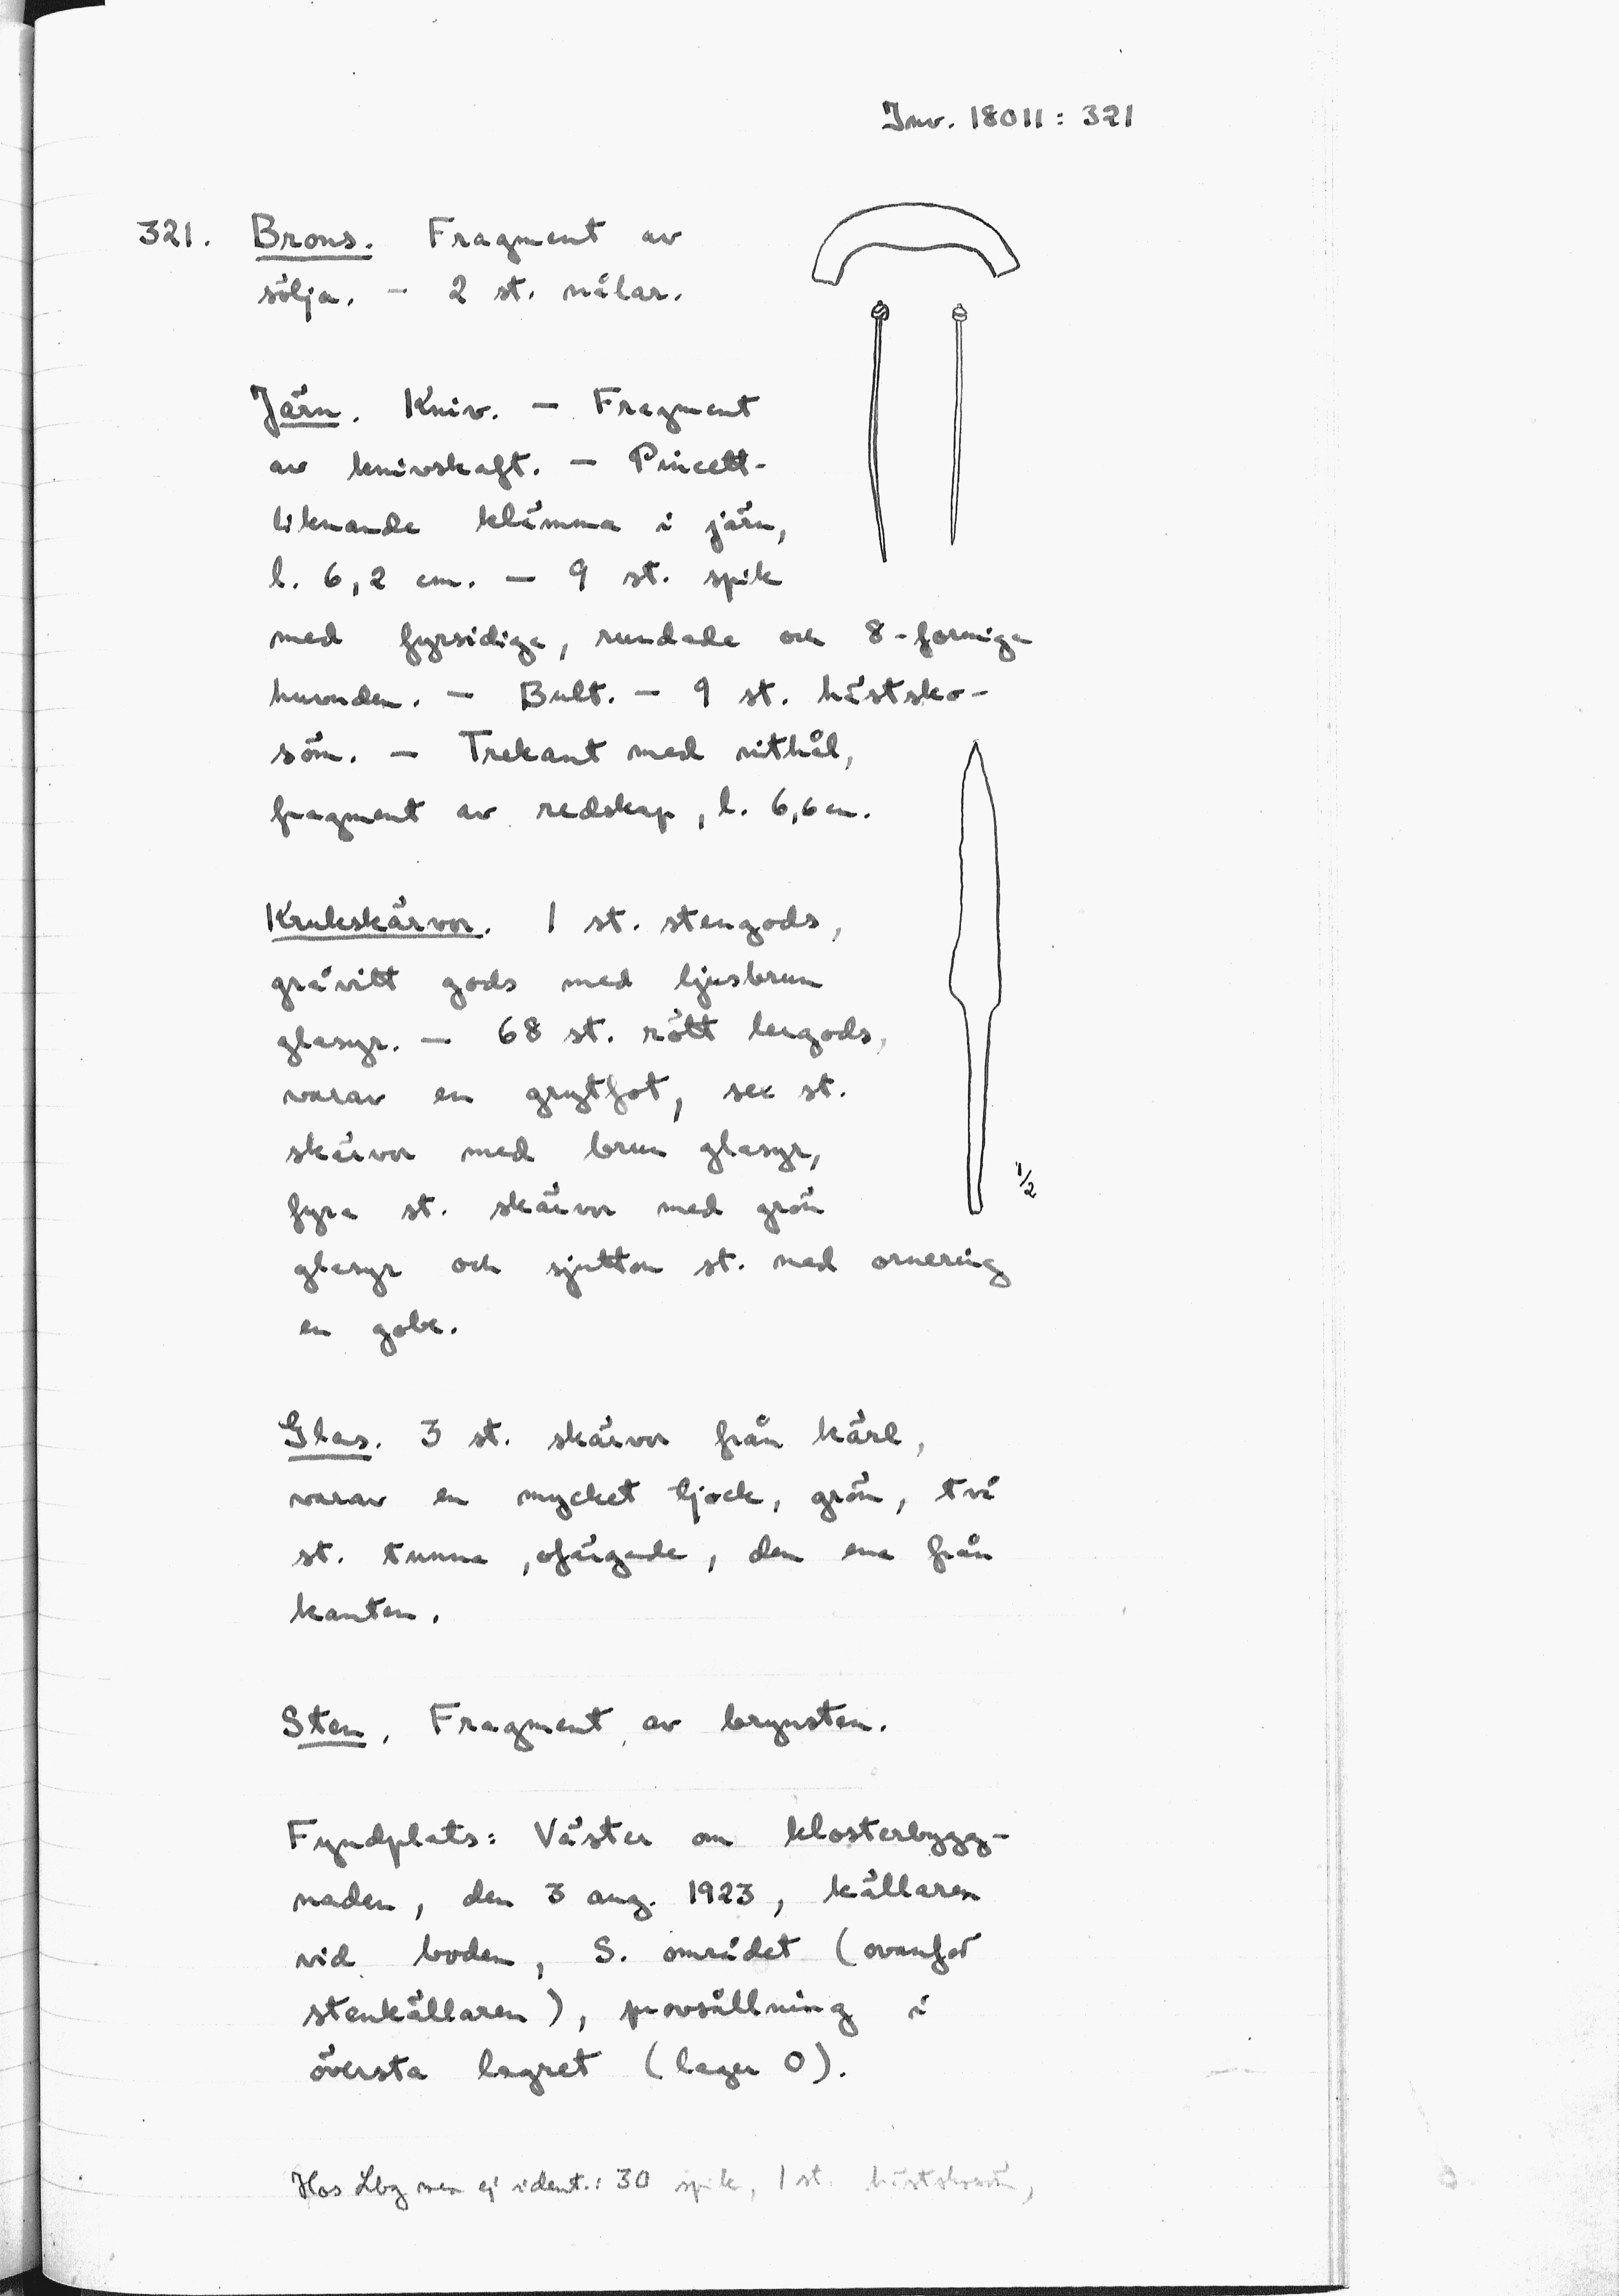 Inv. 18011 : 321
321. Brons. Fragment av
sölja. – 2 st. nålar.
Järn. Kniv. – Fragment
av knivskaft. – Pincett-
liknande klämma i järn,
l. 6,2 cm. – 9 st. spik
med fyrsidiga, rundade och 8-formiga
huvuden. – Bult. – 9 st. hästsko-
söm. – Trekant med nithål,
fragment av redskap, l. 6,6 cm.
Krukskärvor. 1 st. stengods,
gråvitt gods med ljusbrun
glasyr. – 68 st. rött lergods,
varav en grytfot, sex st.
skärvor med brun glasyr,
fyra st. skärvor med grön
1/2
glasyr och sjutton st. med ornering
en gobe.
Glas. 3 st. skärvor från kärl,
varav en mycket tjock, grön, två
st. tunna, ofärgade, den ena från
kanten.
Sten. Fragment av brynsten.
Fyndplats: Väster om klosterbygg-
naden, den 3 aug. 1923, källaren
vid boden, S. området (ovanför
stenkällaren), provsållning i
översta lagret (lager 0).
Hos Lbg men ej ident.: 30 spik, 1 st. hästskosöm,